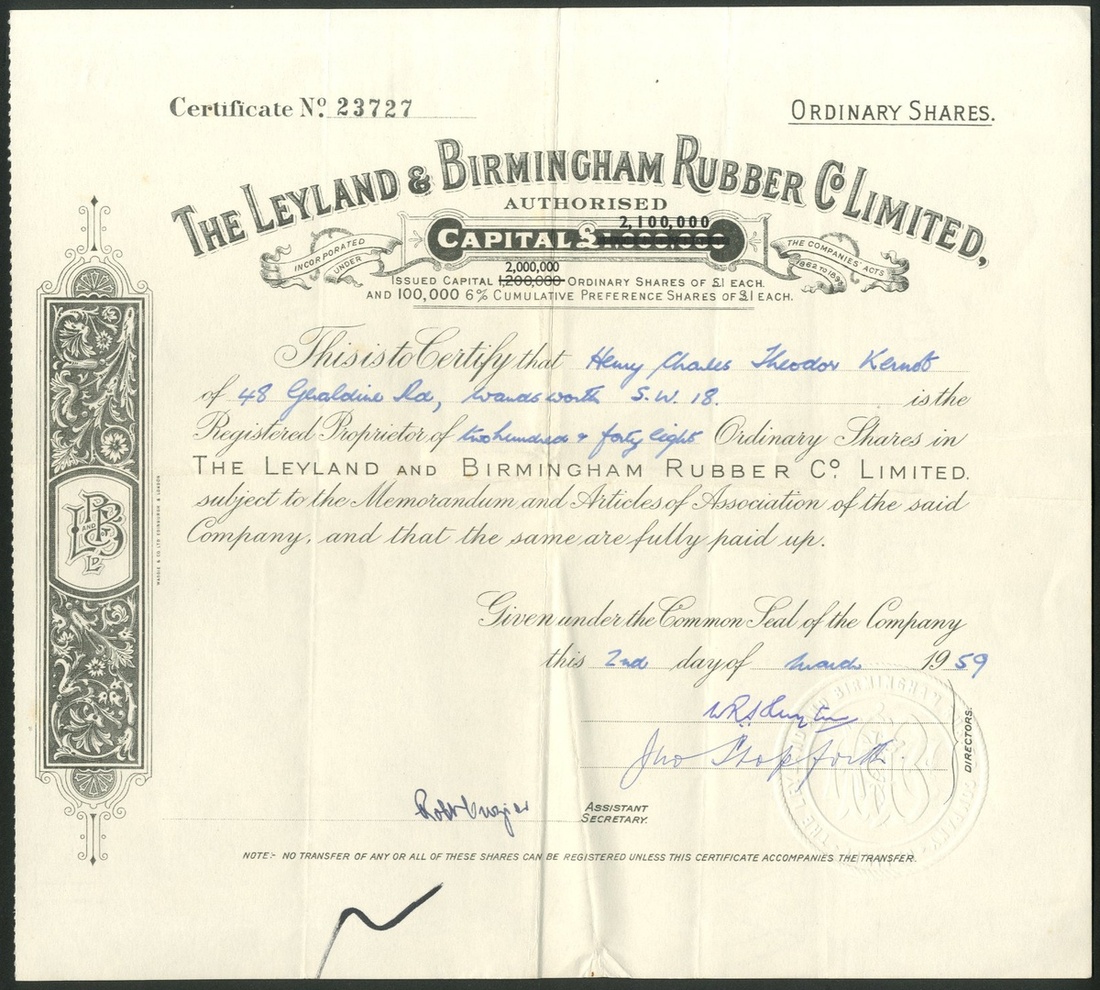 Certificate No. 23727
ORDINARY SHARES.
THE LEYLAND & BIRMINGHAM RUBBER Co LIMITED,
AUTHORISED
2,100,000
CAPITAL £
INCORPORATED UNDER
THE COMPANIES' ACTS
2,000,000
ISSUED CAPITAL 1,200,000 ORDINARY SHARES OF £1 EACH.
AND 100,000 6% CUMULATIVE PREFERENCE SHARES OF £1 EACH.
This is to Certify that Henry Charles Theodor Kernot
of 48 Geraldine Rd, Wandsworth S.W. 18. is the
Registered Proprietor of two hundred & forty eight Ordinary Shares in
THE LEYLAND AND BIRMINGHAM RUBBER Co. LIMITED.
subject to the Memorandum and Articles of Association of the said
Company, and that the same are fully paid up.
L AND B R Co LD
Given under the Common Seal of the Company
this 2nd day of March 1959
Jno Stopforth.
DIRECTORS.
ASSISTANT
SECRETARY.
NOTE:- NO TRANSFER OF ANY OR ALL OF THESE SHARES CAN BE REGISTERED UNLESS THIS CERTIFICATE ACCOMPANIES THE TRANSFER.